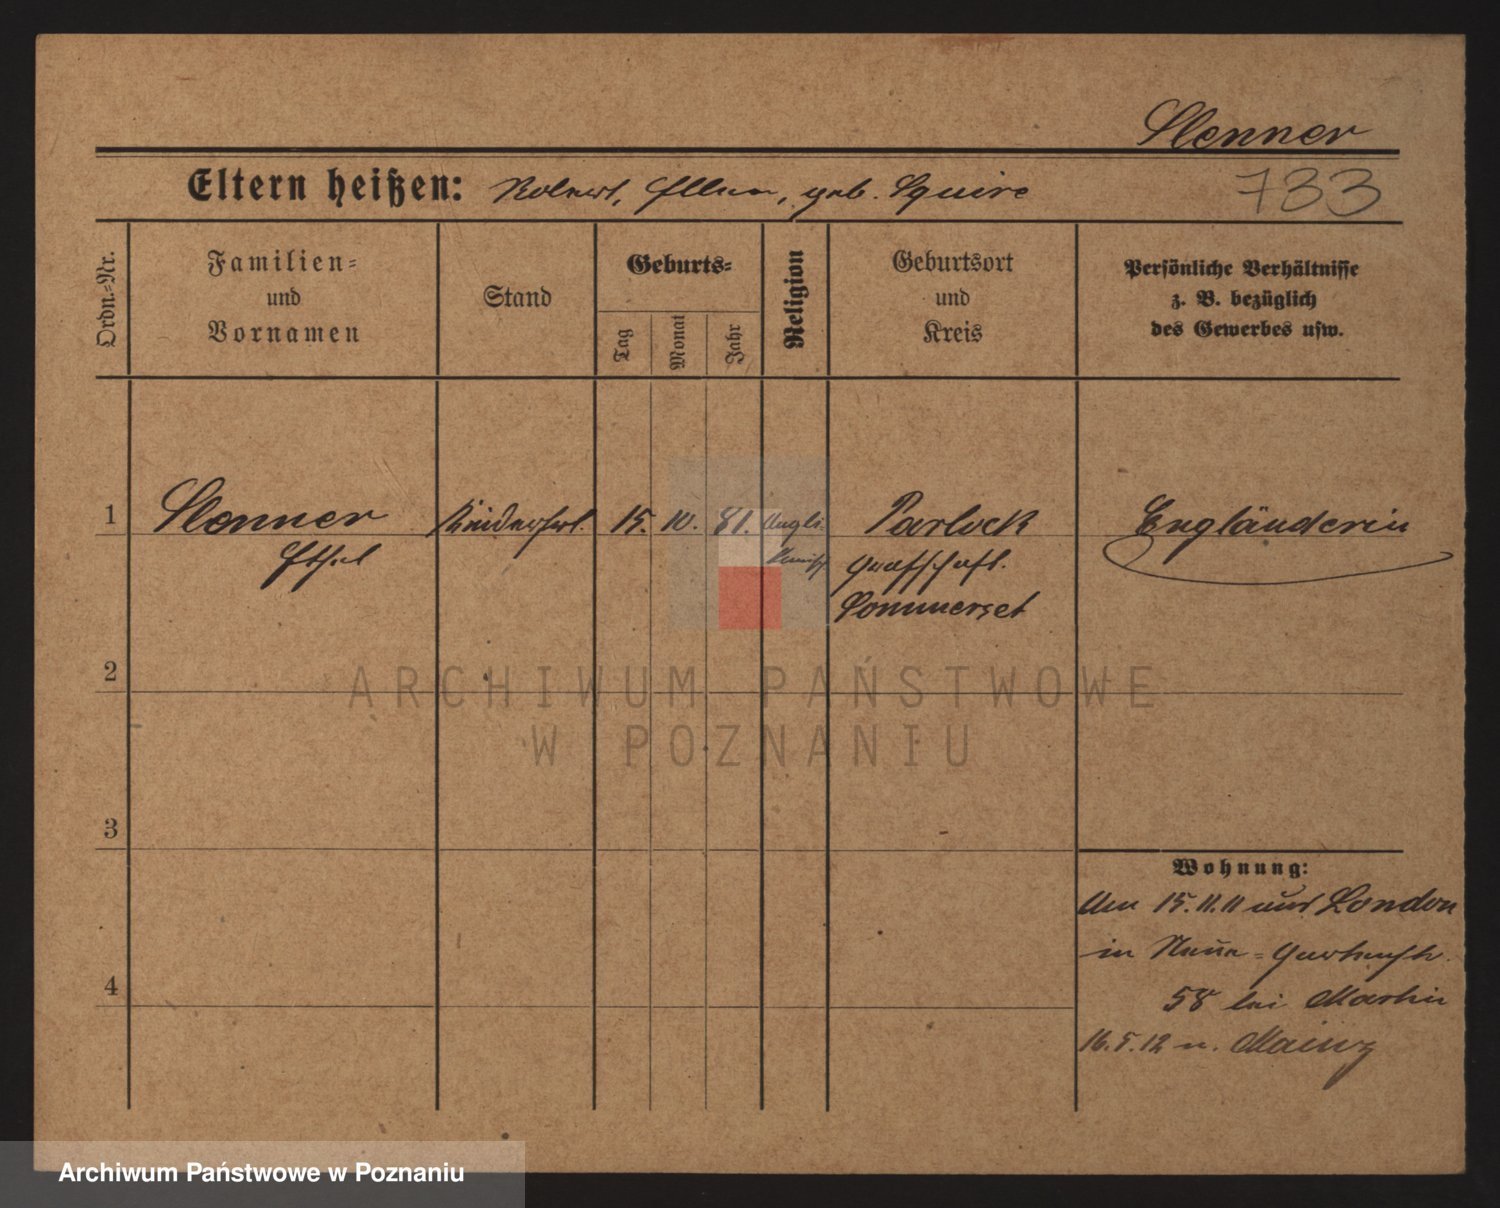 Slenner
Eltern heißen: Robert, Ellen, geb. Squire
733
Ordn.=Nr.
Familien=
und
Vornamen
Stand
Geburts=
Tag
Monat
Jahr
Religion
Geburtsort
und
Kreis
Persönliche Verhältnisse
z. B. bezüglich
des Gewerbes usw.
1 Slenner Kinderfrl. 15. 10. 81. Angli Parlock Engländerin
Ethel kanisch Grafschaft.
Sommerset
2
ARCHIWUM PAŃSTWOWE
W POZNANIU
3
Wohnung:
Am 15.11.11 aus London
in Neue=Gartenstr.
4
58 bei Martin
16.5.12 n. Mainz
Archiwum Państwowe w Poznaniu